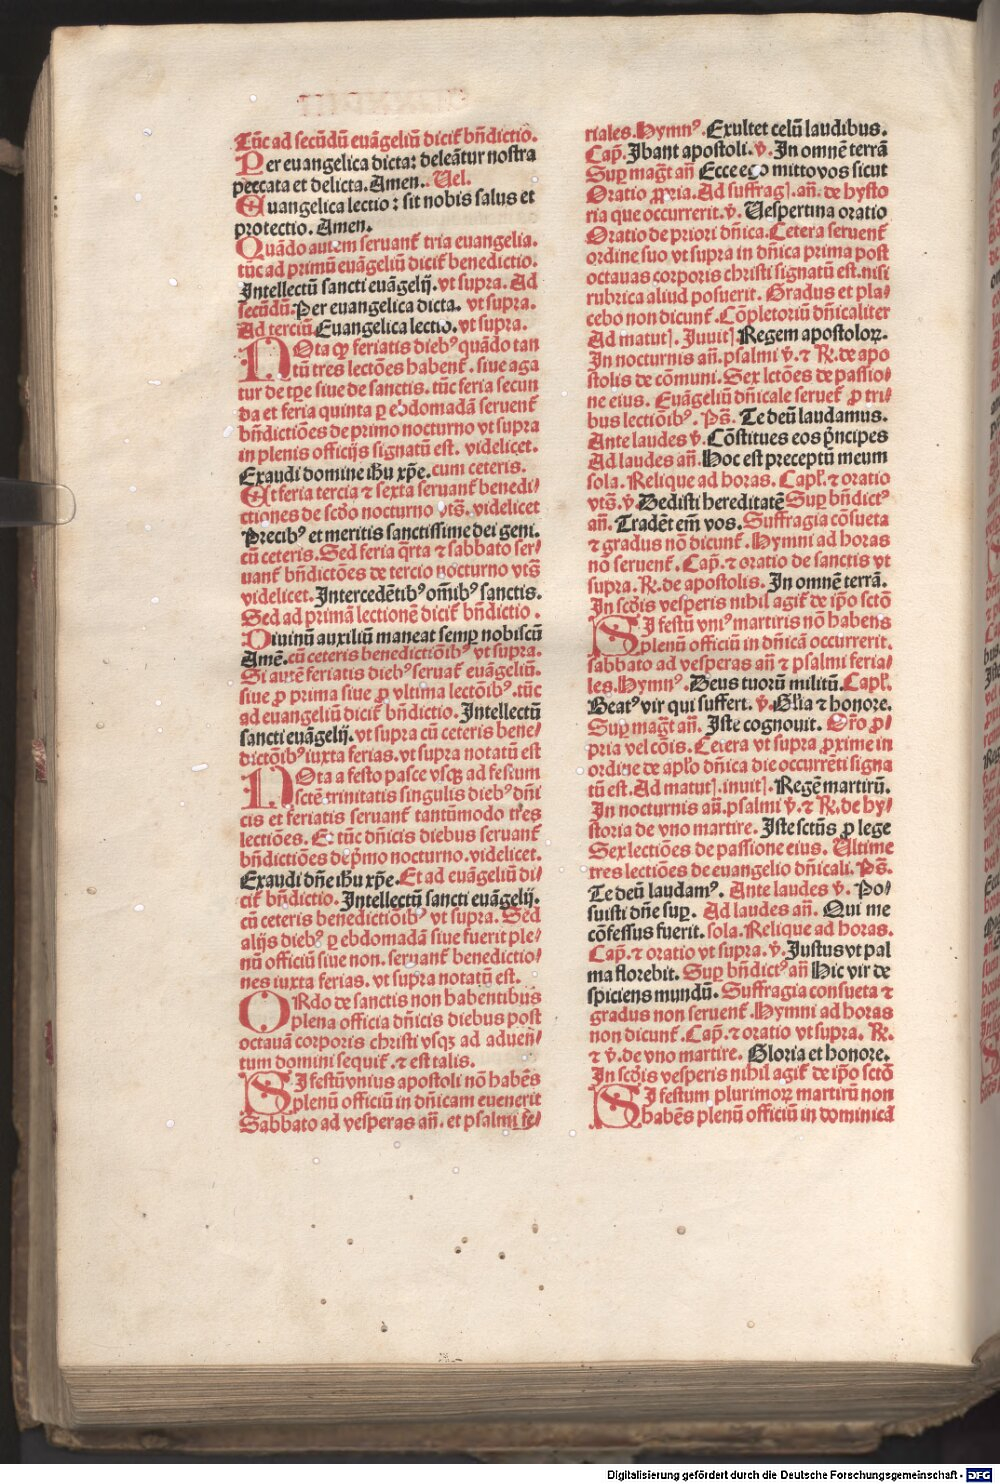 Tūc ad secūdū euāgeliū dicit᷑ bn̄dictio.
Per euangelica dicta: deleāt̄ur nostra
peccata et delicta. Amen.. Uel.
Euangelica lectio: sit nobis salus et
protectio. Amen.
Quādo autem seruant᷑ tria euangelia.
tūc ad primū euāgeliū dicit᷑ benedictio.
Intellectū sancti euāgelij. vt supra. Ad
secūdū. Per euangelica dicta. vt supra.
Ad terciū. Euangelica lectio. vt supra.
NOta ꝙ feriatis diebꝰ quādo tan
tū tres lectōes habent᷑. siue aga
tur de tꝑe siue de sanctis. tūc feria secun
da et feria quinta ꝑ ebdomadā seruent᷑
bn̄dictiōes de primo nocturno vt supra
in plenis officijs signatū est. videlicet.
Exaudi domine ihū xp̄e. cum ceteris.
Et feria tercia ⁊ sexta seruant᷑ benedi⸗
ctiones de scd̄o nocturno vts̄. videlicet
Precibꝰ et meritis sanctissime dei geni.
cū ceteris. Sed feria q̄rta ⁊ sabbato ser⸗
uant᷑ bn̄dictōes de tercio nocturno vts̄
videlicet. Intercedētibꝰ om̄ibꝰ sanctis.
Sed ad primā lectionē dicit᷑ bn̄dictio.
Diuinū auxiliū maneat semꝑ nobiscū
Amē. cū ceteris benedictiōibꝰ vt supra.
Si autē feriatis diebꝰ seruat᷑ euāgeliū.
siue ꝓ prima siue ꝓ vltima lectōibꝰ. tūc
ad euangeliū dicit᷑ bn̄dictio. Intellectū
sancti euāgelij. vt supra cū ceteris bene⸗
dictōibꝰ iuxta ferias. vt supra notatū est
NOta a festo pasce vsqꝫ ad festum
sctē trinitatis singulis diebꝰ dn̄i
cis et feriatis seruant᷑ tantūmodo tres
lectiōes. Et tūc dn̄icis diebus seruant᷑
bn̄dictiōes de p̄mo nocturno. videlicet.
Exaudi dn̄e ihū xp̄e. Et ad euāgeliū di⸗
cit᷑ bn̄dictio. Intellectū sancti euāgelij.
cū ceteris benedictiōibꝰ vt supra. Sed
alijs diebꝰ ꝑ ebdomadā siue fuerit ple⸗
nū officiū siue non. seruant᷑ benedictio⸗
nes iuxta ferias. vt supra notatū est.
ORdo de sanctis non habentibus
plena officia dn̄icis diebus post
octauā corporis christi vsqꝫ ad aduen̄⸗
tum domini sequit᷑. ⁊ est talis.
SI festū vnius apostoli nō habēs
plenū officiū in dn̄icam euenerit
Sabbato ad vesperas an̄. et psalmi fe⸗
riales. Hymnꝰ. Exultet celū laudibus.
Cap̄. Ibant apostoli. v̄. In omnē terrā
Suꝑ maḡt an̄ Ecce ego mitto vos sicut
Oratio ꝓpria. Ad suffrag]. an̄. de hysto
ria que occurrerit. v̄. Uespertina oratio
Oratio de priori dn̄ica. Cetera seruent᷑
ordine suo vt supra in dn̄ica prima post
octauas corporis christi signatū est. nisi
rubrica aliud posuerit. Gradus et pla⸗
cebo non dicunt᷑. Cōpletoriū dn̄icaliter
Ad matut]. Inuit]. Regem apostoloꝝ.
In nocturnis an̄. psalmi v̄. ⁊ R̄. de apo
stolis de cōmuni. Sex lctōes de passio⸗
ne eius. Euāgeliū dn̄icale seruet᷑ ꝓ tri⸗
bus lectiōibꝰ. Ps̄. Te deū laudamus.
Ante laudes v̄. Cōstitues eos p̄ncipes
Ad laudes an̄. Hoc est preceptū meum
sola. Relique ad horas. Capl̄. ⁊ oratio
vts̄. v̄. Dedisti hereditatē Suꝑ bn̄dictꝰ
an̄. Tradēt em̄ vos. Suffragia cōsueta
⁊ gradus nō dicunt᷑. Hymni ad horas
nō seruent᷑. Cap̄. ⁊ oratio de sanctis vt
supra. R̄. de apostolis. In omnē terrā.
In scd̄is vesperis nihil agit᷑ de ip̄o sctō
SI festū vniꝰ martiris nō habens
plenū officiū in dn̄icā occurrerit.
sabbato ad vesperas an̄ ⁊ psalmi feria⸗
les. Hymnꝰ. Deus tuorū militū. Capl̄.
Beatꝰ vir qui suffert. v̄. Gl̄ia ⁊ honore.
Suꝑ maḡt an̄. Iste cognouit. Or̄o ꝓ⸗
pria vel cōis. Cetera vt supra ꝓxime in
ordine de apl̄o dn̄ica die occurrēti signa
tū est. Ad matut]. inuit]. Regē martirū.
In nocturnis an̄. psalmi v̄. ⁊ R̄. de hy⸗
storia de vno martire. Iste sctūs ꝓ lege
Sex lectiōes de passione eius. Ultime
tres lectiōes de euangelio dn̄icali. Ps̄.
Te deū laudamꝰ. Ante laudes v̄. Po⸗
suisti dn̄e suꝑ. Ad laudes an̄. Qui me
cōfessus fuerit. sola. Relique ad horas.
Cap̄. ⁊ oratio vt supra. v̄. Iustus vt pal
ma florebit. Suꝑ bn̄dictꝰ an̄ Hic vir de
spiciens mundū. Suffragia consueta ⁊
gradus non seruent᷑. Hymni ad horas
non dicunt᷑. Cap̄. ⁊ oratio vt supra. R̄.
⁊ v̄. de vno martire. Gloria et honore.
In scd̄is vesperis nihil agit᷑ de ip̄o sctō
SI festum plurimoꝝ martirū non
habēs plenū officiū in dominicā
Digitalisierung gefördert durch die Deutsche Forschungsgemeinschaft - DFG